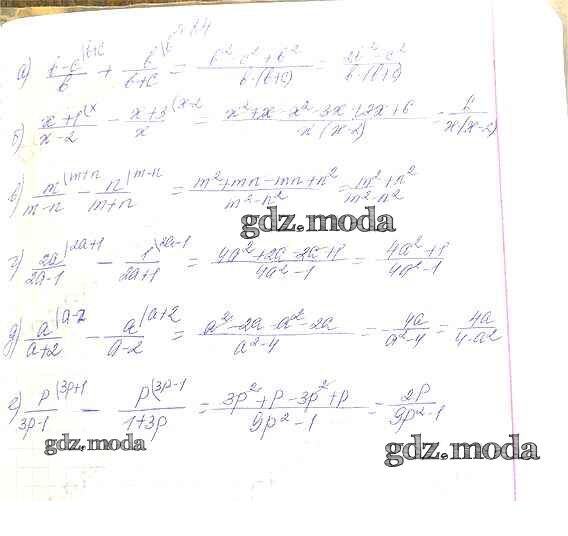 № 84
а) (b-c)/b |b+c + b/(b+c) |b = (b²-c²+b²)/(b·(b+c)) = (2b²-c²)/(b·(b+c))
б) (x+1)/(x-2) |x - (x+3)/x |x-2 = (x²+x-x²-3x+2x+6)/(x(x-2)) = 6/(x(x-2))
в) m/(m-n) |m+n - n/(m+n) |m-n = (m²+mn-mn+n²)/(m²-n²) = (m²+n²)/(m²-n²)
gdz.moda
г) 2a/(2a-1) |2a+1 - 1/(2a+1) |2a-1 = (4a²+2a-2a+1)/(4a²-1) = (4a²+1)/(4a²-1)
д) a/(a+2) |a-2 - a/(a-2) |a+2 = (a²-2a-a²-2a)/(a²-4) = 4a/(a²-4) = 4a/(4-a²)
е) p/(3p-1) |3p+1 - p/(1+3p) |3p-1 = (3p²+p-3p²+p)/(9p²-1) = 2p/(9p²-1)
gdz.moda
gdz.moda